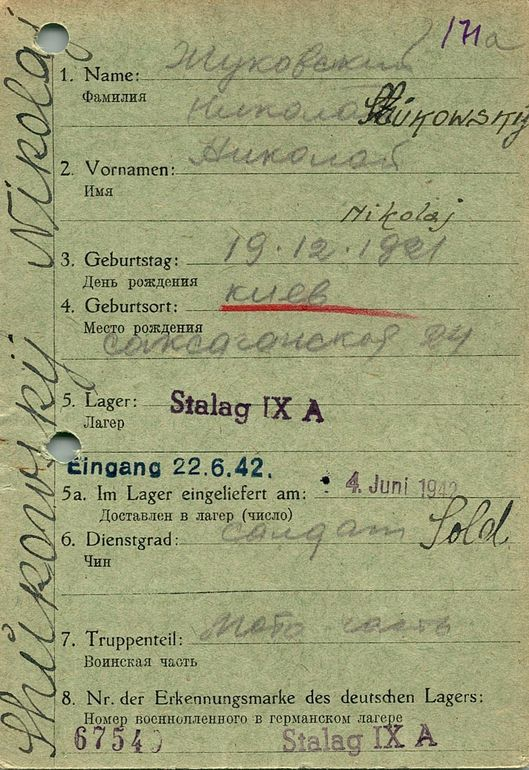 171a
Shükowskij Nikolaj
1. Name: Жуковский
Фамилия
Николай Shukowsky
2. Vornamen: Николай
Имя
Nikolaj
3. Geburtstag: 19.12.1921
День рождения
4. Geburtsort: Киев
Место рождения
саксаганской 24
5. Lager: Stalag IX A
Лагер
Eingang 22.6.42.
5a. Im Lager eingeliefert am: 4. Juni 1942
Доставлен в лагер (число)
6. Dienstgrad: солдат Sold
Чин
7. Truppenteil: мото часть
Воинская часть
8. Nr. der Erkennungsmarke des deutschen Lagers:
Номер военнопленного в германском лагере
67540 Stalag IX A